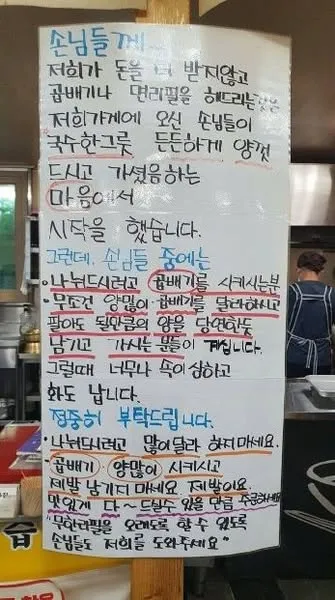 손님들께~
저희가 돈을 더 받지않고
곱배기나 면리필을 해드리는것은
저희가게에 오신 손님들이
국수한그릇 든든하게 양껏
드시고 가셨음하는
마음에서
시작을 했습니다.
그런데, 손님들 중에는
·나눠드시려고 곱배기를 시키시는분
·무조건 양많이 곱배기를 달라하시고
팔아도 될만큼의 양을 당연한듯
남기고 가시는 분들이 계십니다.
그럴때 너무나 속이 상하고
화도 납니다.
정중히 부탁드립니다.
·나눠드시려고 많이달라 하지마세요.
-곱배기, 양많이 시키시고
제발 남기지 마세요 제발이요.
맛있게 다~드실수 있을 만큼 주문하세요
"무한리필을 오래도록 할 수 있도록
손님들도 저희를 도와주세요"
습